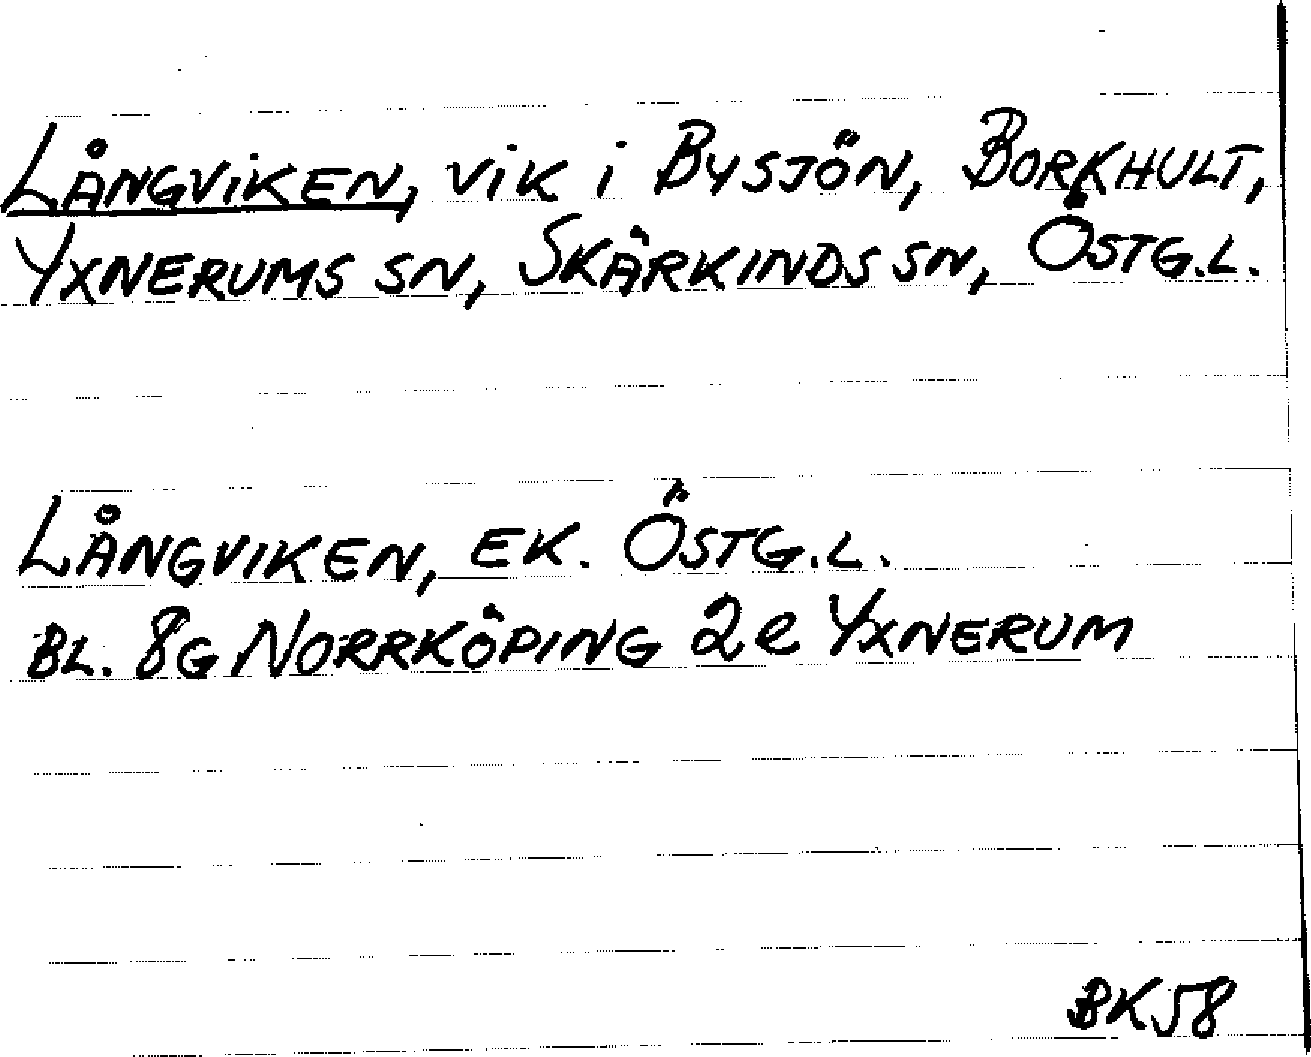 LÅNGVIKEN, VIK I BYSJÖN, BORKHULT,
YXNERUMS SN, SKÄRKINDS SN, ÖSTG.L.
LÅNGVIKEN, EK. ÖSTG.L.
BL. 8G NORRKÖPING 2e YXNERUM
BK58